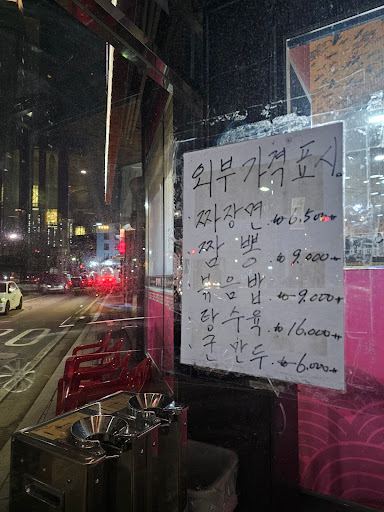 외부가격표시.
·짜장면 ₩6.500
·짬 뽕 ₩9.000
·볶음밥 ₩9.000
·탕수육 ₩16.000
·군만두 ₩6.000